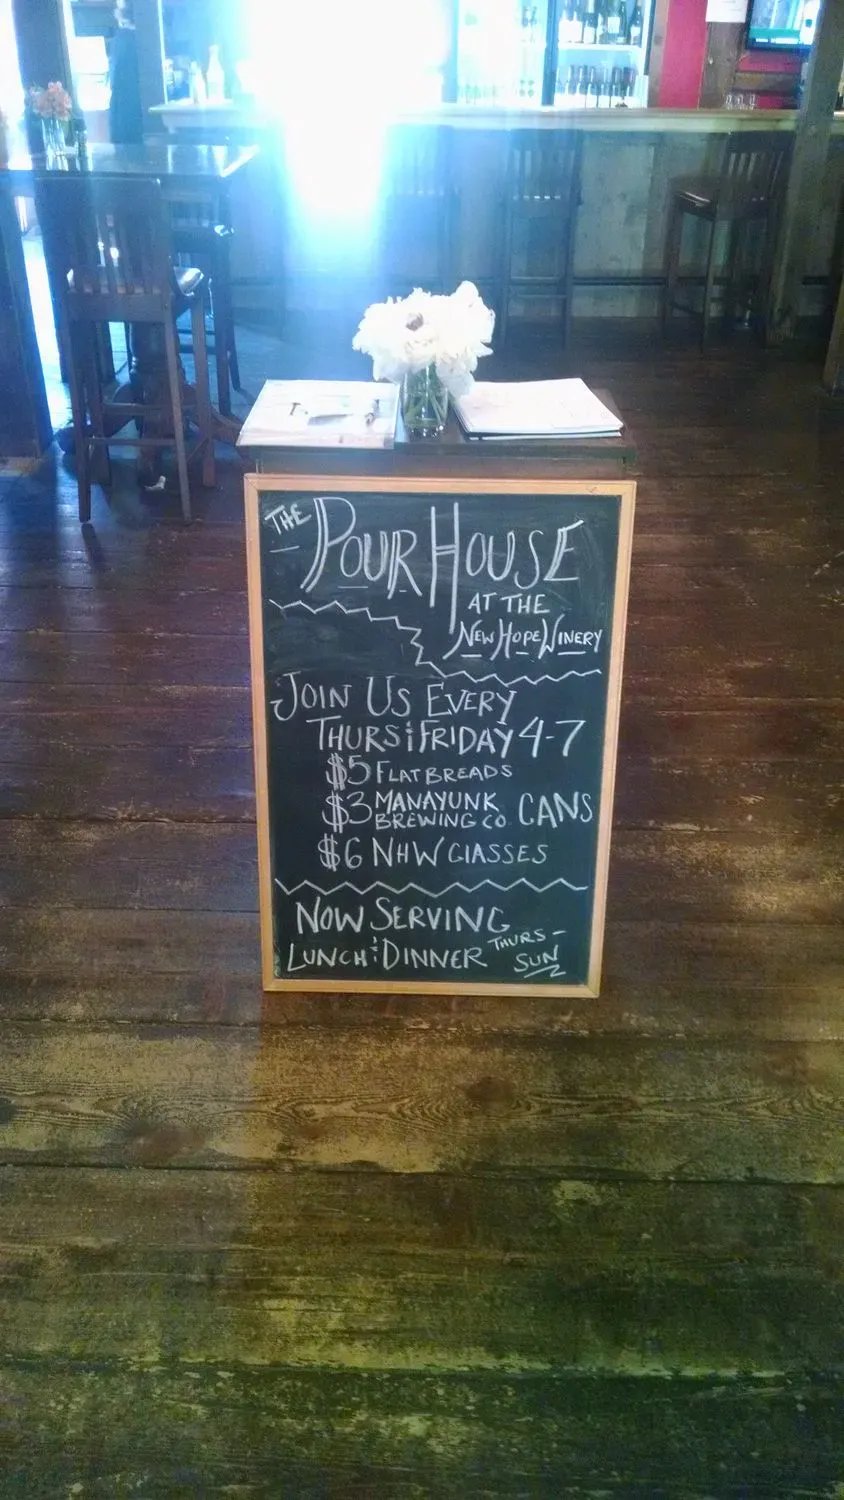 THE POUR HOUSE
AT THE
NEW HOPE WINERY
JOIN US EVERY
THURS & FRIDAY 4-7
$5 FLATBREADS
$3 MANAYUNK BREWING CO. CANS
$6 NHW GLASSES
NOW SERVING
LUNCH & DINNER THURS-
SUN